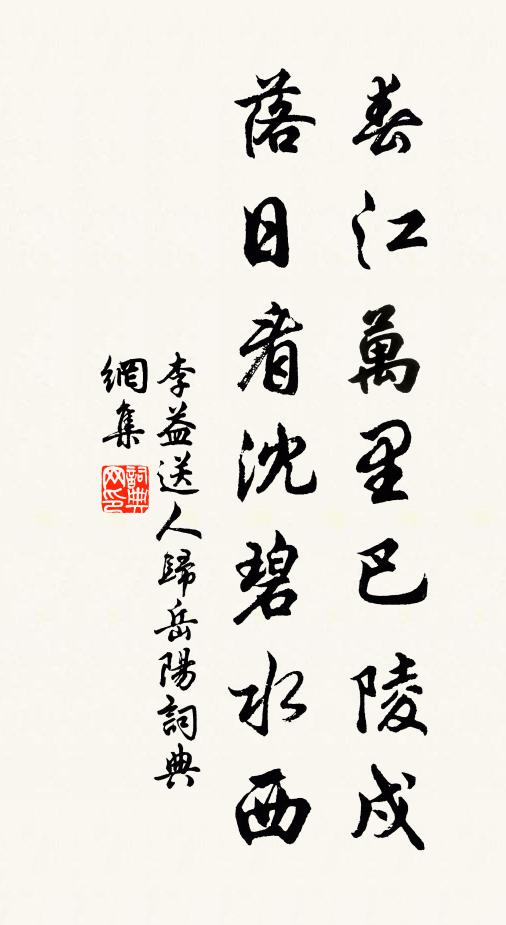 春江萬里巴陵戍
落日看沈碧水西
李益送人歸岳陽詞典
網集
詞典網印